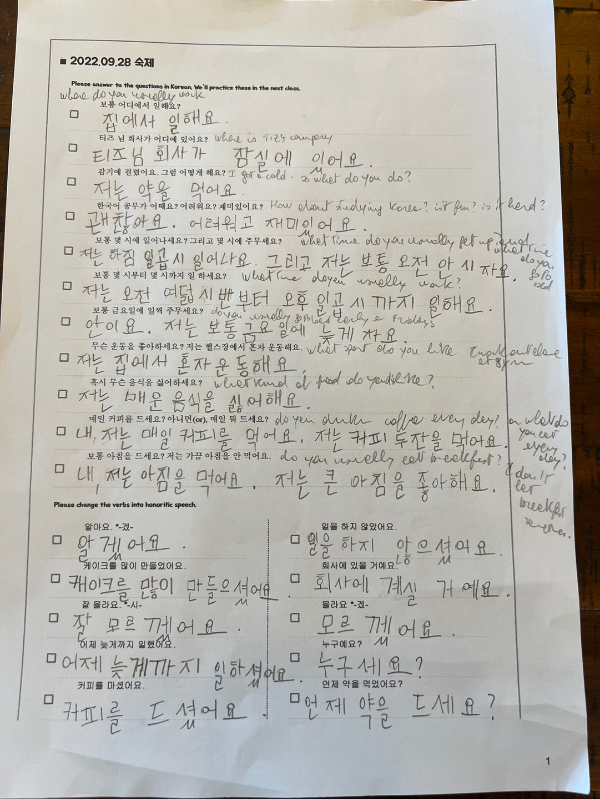 ■ 2022.09.28 숙제
Please answer to the questions in Korean, We'll practice these in the next class.
where do you usually work
보통 어디에서 일해요?
집에서 일해요.
티즈 님 회사가 어디에 있어요? where is Tiz's company
티즈님 회사가 잠실에 이어요.
감기에 걸렸어요. 그럼 어떻게 해요? I got a cold - so what do you do?
저는 약을 먹어요.
한국어 공부가 어때요? 어려워요? 재미있어요? How about studying Korea? is it fun? is it hard?
괜찮아요. 어려워고 재미있어요.
보통 몇 시에 일어나세요? 그리고 몇 시에 주무세요? what time do you usually get up and what time do you go to bed
저는 아짐 일곱시 일어나요. 그리고 저는 보통 오전 안 시 자요.
보통 몇 시부터 몇 시까지 일 하세요? what time do you usually work?
저는 오전 여덟시반부터 오후 일고시까지 일해요.
보통 금요일에 일찍 주무세요? do you usually early Fridays
안이요. 저는 보통금요일에 늦게 자요.
무슨 운동을 좋아하세요? 저는 헬스장에서 혼자 운동해요. what sport do you like I work out alone at gym
저는 집에서 혼자운동해요.
혹시 무슨 음식을 싫어하세요? what kind of food do you like?
저는 매운 음식을 싫어해요.
매일 커피를 드세요? 아니면(or), 매일 뭐 드세요? do you drink coffee every day? or what do you eat every day?
내, 저는 매일 커피를 먹어요. 저는 커피 두잔을 먹어요.
보통 아침을 드세요? 저는 가끔 아침을 안 먹어요. do you usually eat breakfast? I don't eat breakfast
내, 저는 아침을 먹어요. 저는 큰 아침을 좋아해요.
Please change the verbs into honorific speech.
알아요. *-겠-
알게어요.
케이크를 많이 만들었어요.
캐이크를 많이 만들으셨어요.
잘 몰라요. *-시-
잘 모르께어요.
어제 늦게까지 일했어요.
어제 늦게까지 일하셨어요.
커피를 마셨어요.
커피를 드셨어요.
일을 하지 않았어요.
일을 하지 않으셨어요.
회사에 있을 거예요.
회사에 계실 거예요.
몰라요 *-겠-
모르께어요.
누구예요?
누구세요?
언제 약을 먹었어요?
언제 약을 드세요?
1